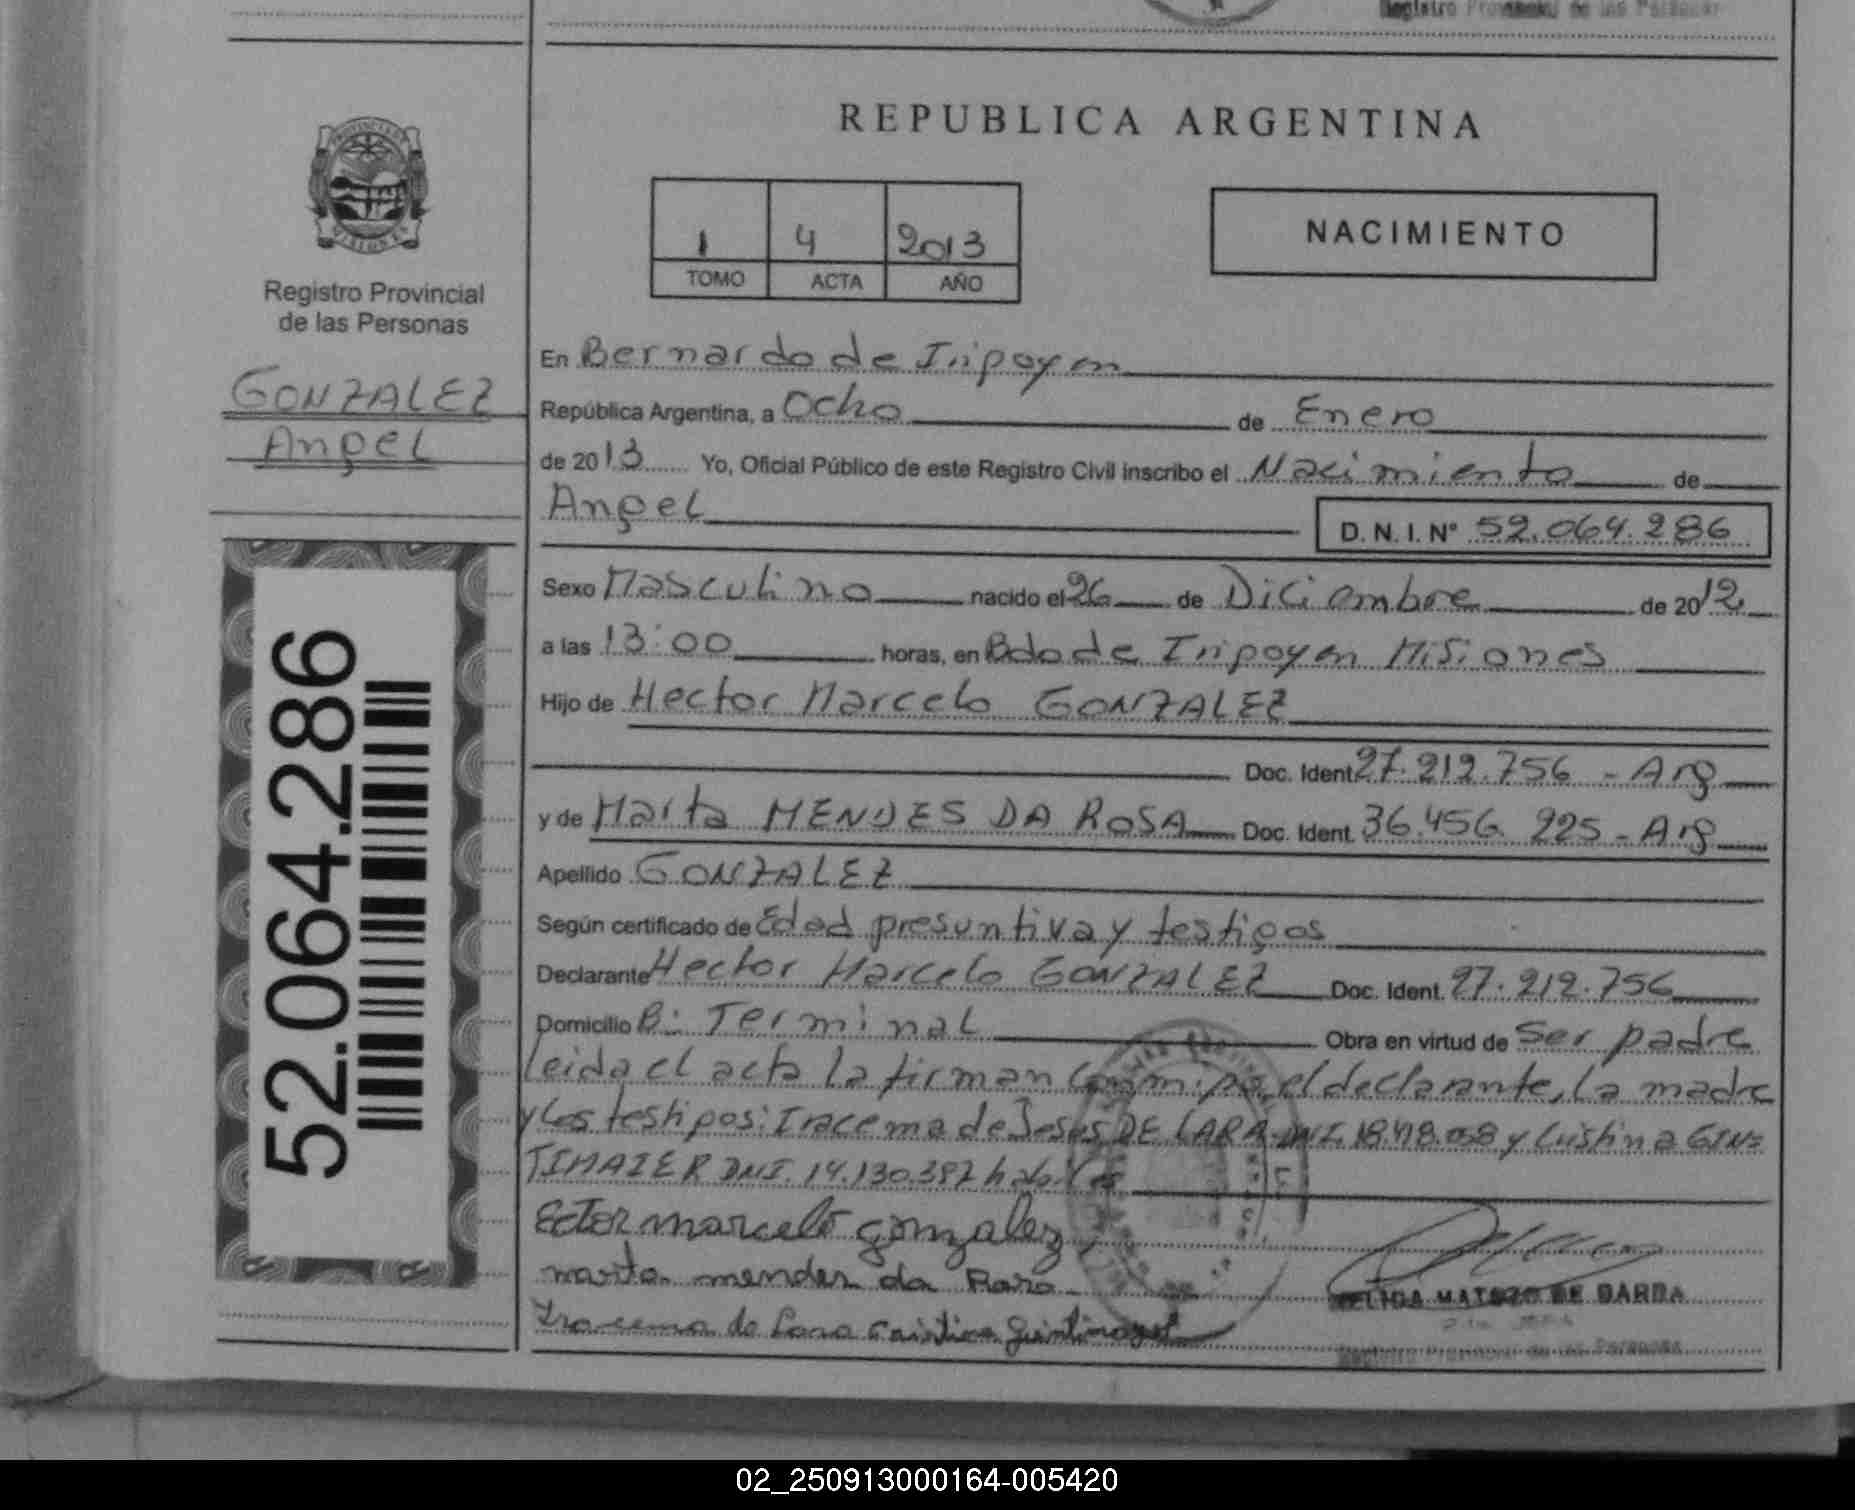 Registro Provincial de las Personas
REPUBLICA ARGENTINA
PROVINCIA DE
MISIONES
Registro Provincial
de las Personas
GONZALEZ
Angel
52.064.286
1 4 2013
TOMO ACTA AÑO
NACIMIENTO
En Bernardo de Irigoyen
República Argentina, a Ocho de Enero
de 2013 Yo, Oficial Público de este Registro Civil inscribo el Nacimiento de
Angel D. N. I. Nº 52.064.286
Sexo Masculino nacido el 26 de Diciembre de 2012
a las 13:00 horas, en Bdo de Irigoyen Misiones
Hijo de Hector Marcelo GONZALEZ
Doc. Ident. 27.212.756 - Arg
y de Marta MENDES DA ROSA Doc. Ident. 36.456.225 - Arg
Apellido GONZALEZ
Según certificado de Edad presuntiva y testigos
Declarante Hector Marcelo GONZALEZ Doc. Ident. 27.212.756
Domicilio B: Terminal Obra en virtud de Ser padre
Leida el acta la firman conmigo, el declarante, la madre
y los testigos: Iracema de Jesus DE LARA DNI. y Cristina GIN=
TIMAIER DNI. 14.130.387 habiles
Ector marcelo gonzalez
marta mendes da Rosa
Iracema de Lara Cristina
MATOZO DE BARRA
Registro Provincial de las Personas
02_250913000164-005420